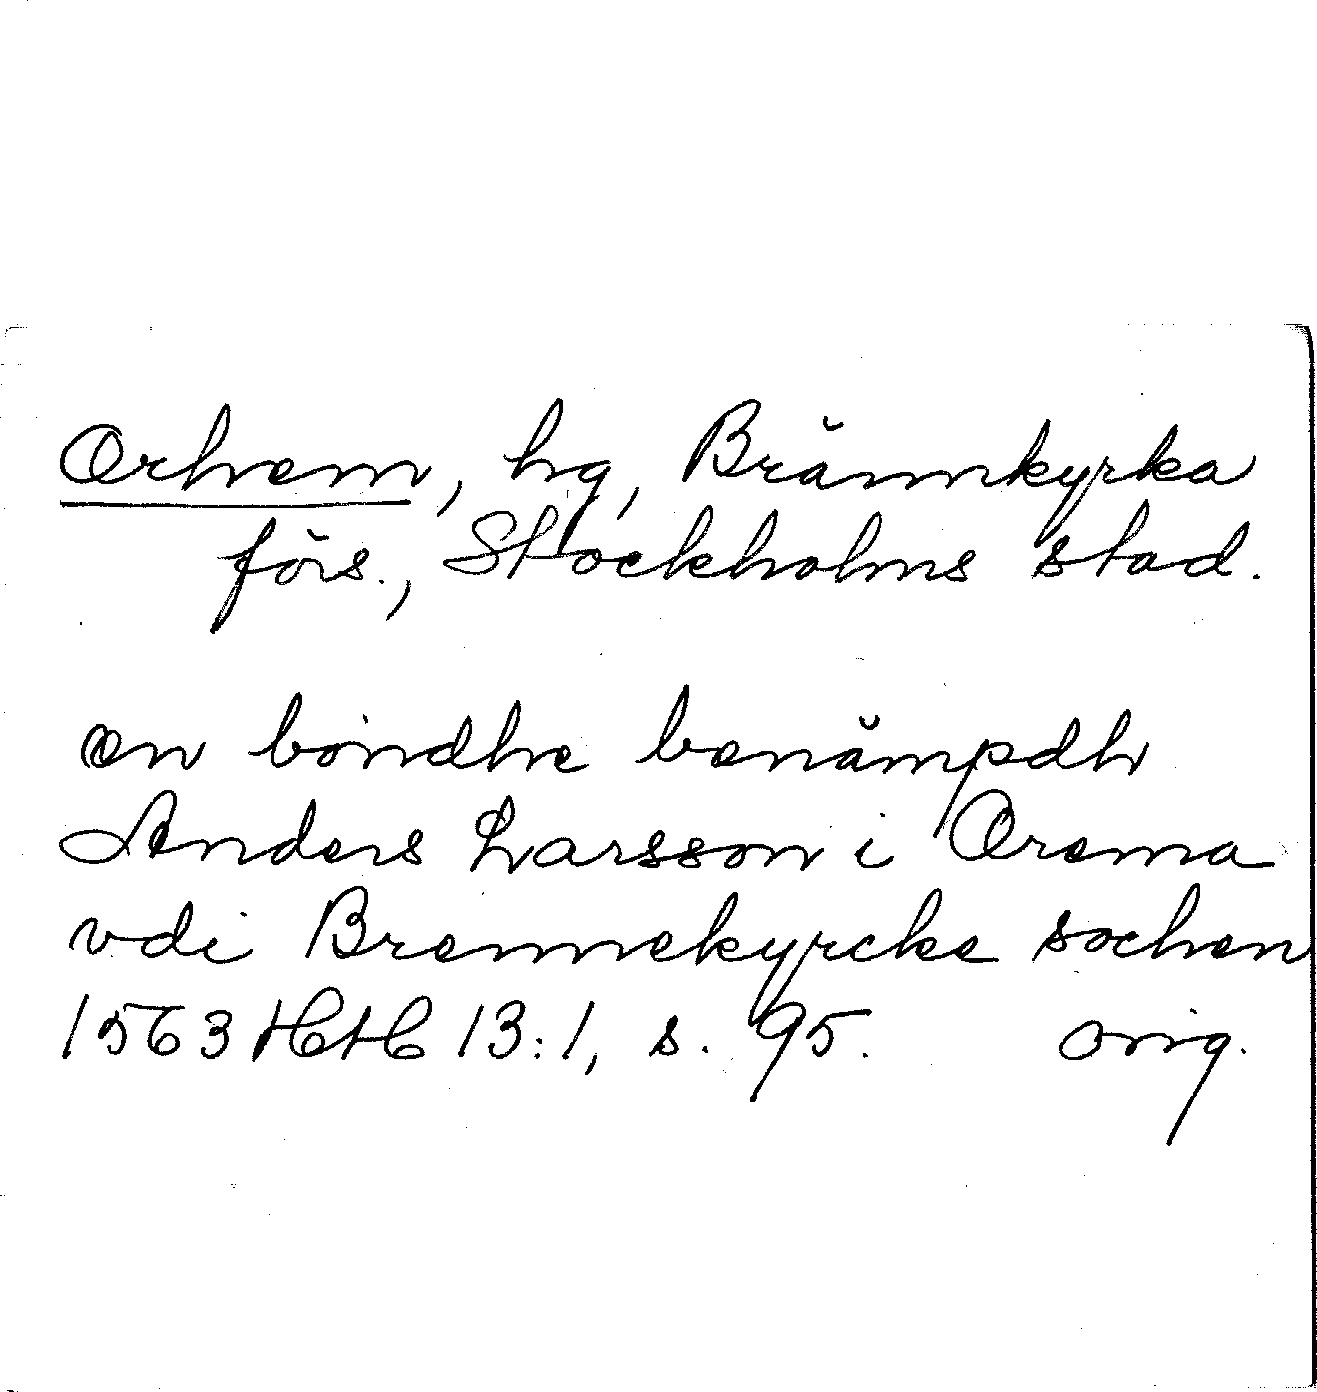 Orhem, hg, Brännkyrka
förs., Stockholms stad.
en bondhe benämpdh
Anders Larsson i Orema
vdi Brennekyrcke sochen
1563 HH 13:1, s. 95. orig.